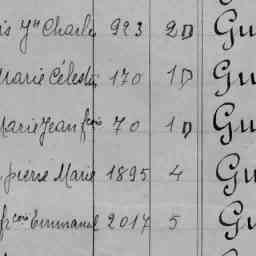 is Yn Charle 993 2D Gu
Marie Céleste 170 1D Gu
Marie Jean fcois 70 1D Gu
pierre Marie 1895 4 Gu
fcois Emmanuel 2017 5 Gu